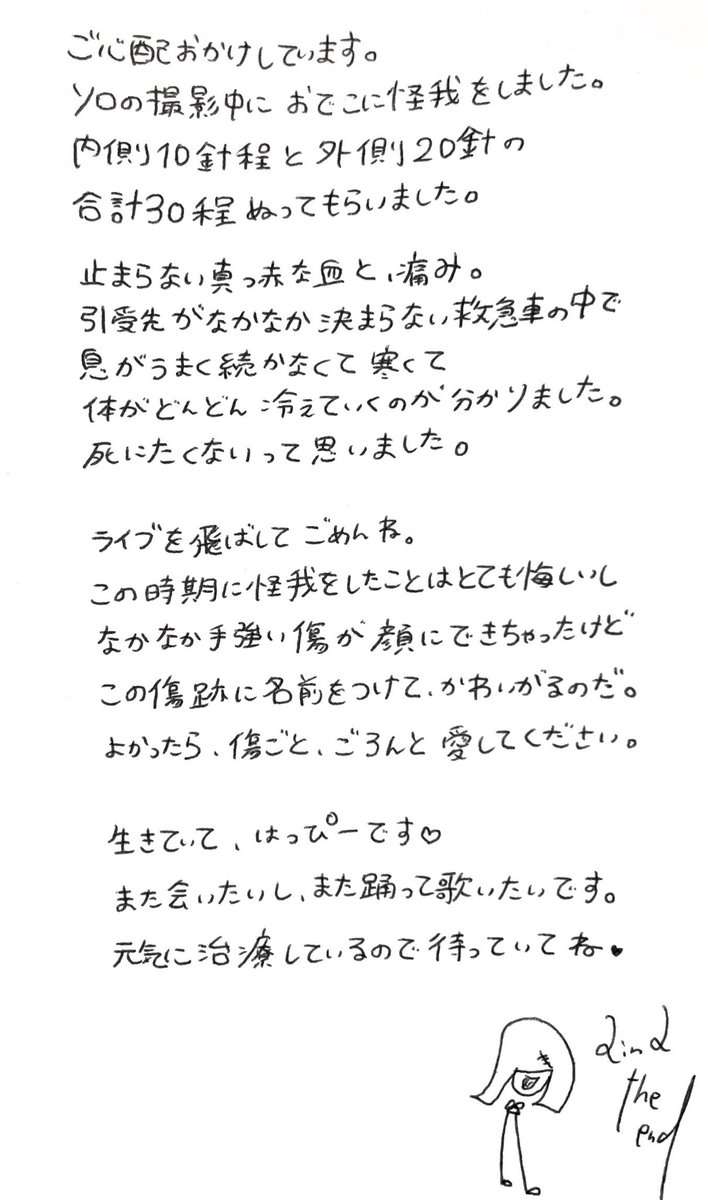 ご心配おかけしています。
ソロの撮影中に おでこに怪我をしました。
内側10針程と外側20針の
合計30程ぬってもらいました。
止まらない真っ赤な血と、痛み。
引受先がなかなか決まらない救急車の中で
息がうまく続かなくて寒くて
体がどんどん冷えていくのが分かりました。
死にたくないって思いました。
ライブを飛ばしてごめんね。
この時期に怪我をしたことはとても悔しいし
なかなか手強い傷が顔にできちゃったけど
この傷跡に名前をつけて、かわいがるのだ。
よかったら、傷ごと、ごろんと愛してください。
生きていて、はっぴーです♡
また会いたいし、また踊って歌いたいです。
元気に治療しているので待っていてね♥
AinA
the
end